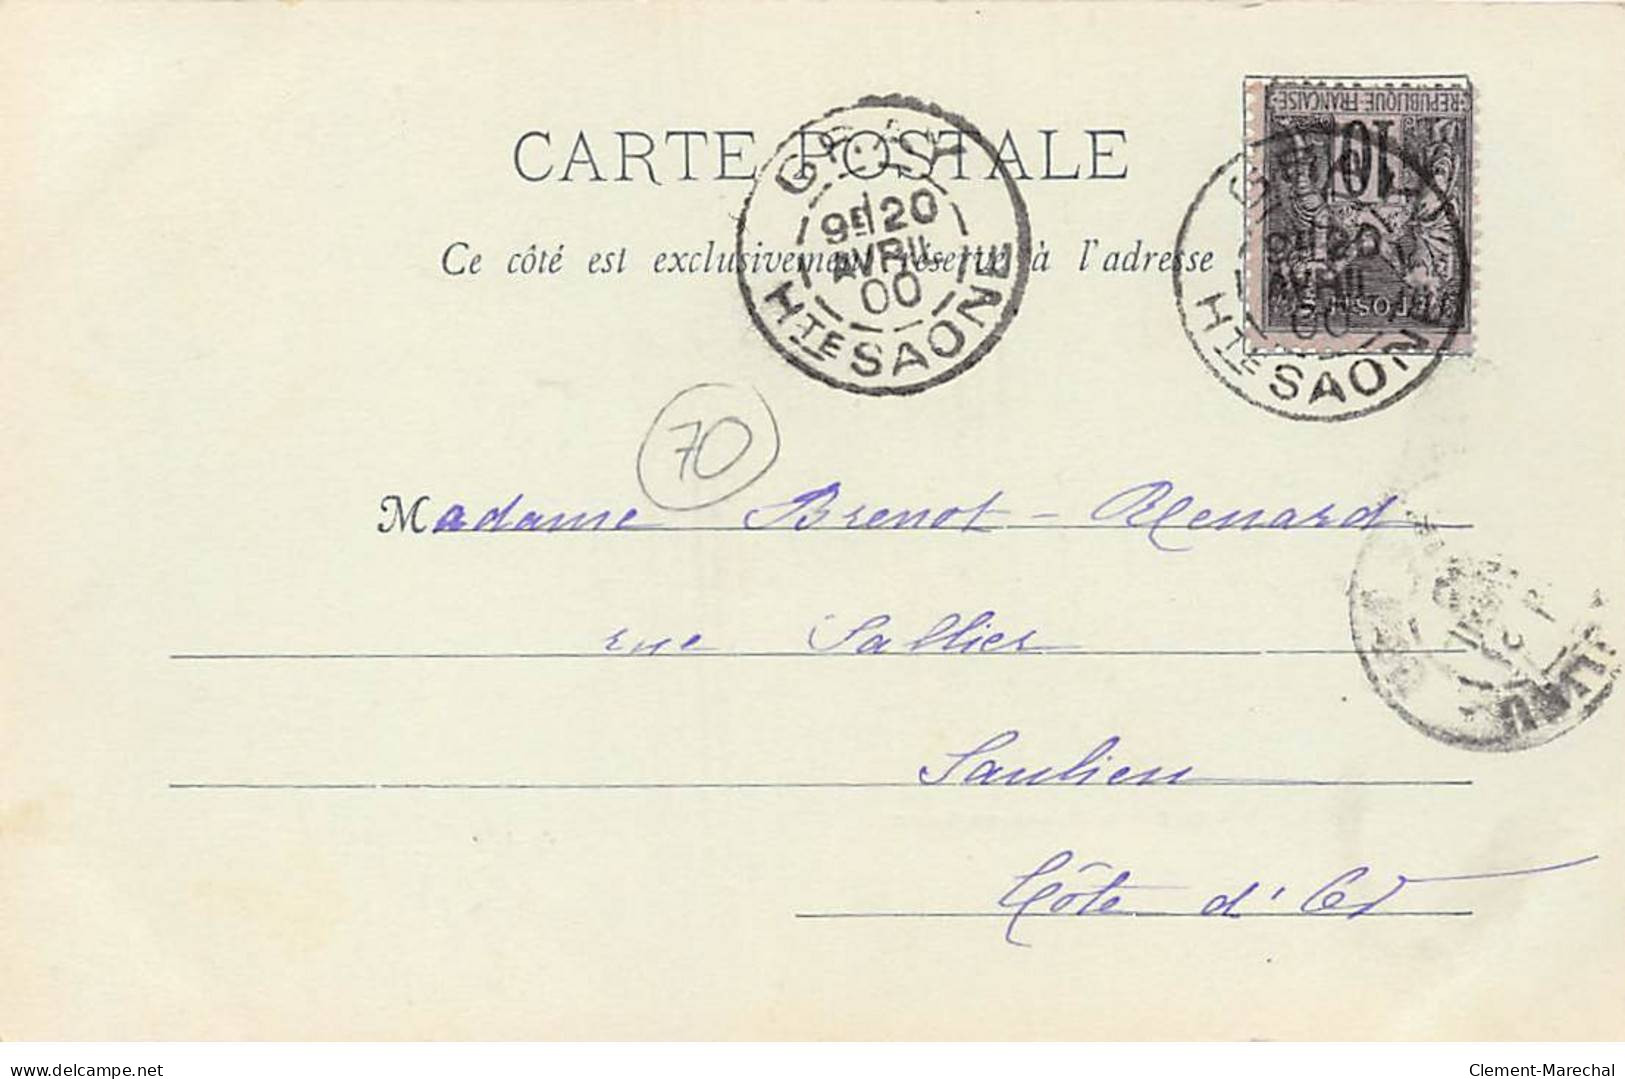 CARTE POSTALE
Ce côté est exclusivement réservé à l'adresse
GRAY
9E 20
AVRIL
00
HTE SAONE
REPUBLIQUE FRANÇAISE
10
GRAY
9E 20
AVRIL
00
HTE SAONE
70
Madame Brenot - Renard
rue Sallier
Saulieu
Côte d'Or
delcampe.net
Clement-Marechal